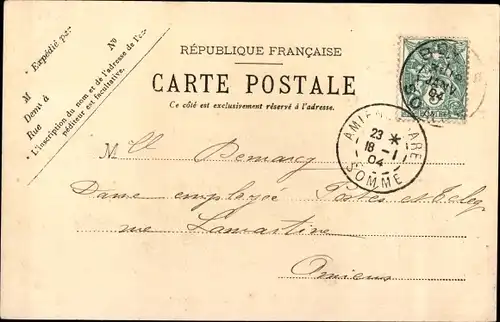 Expédié par
M
Demt à
Rue
No
L'inscription du nom et de l'adresse de l'ex-
péditeur est facultative.
RÉPUBLIQUE FRANÇAISE
CARTE POSTALE
Ce côté est exclusivement réservé à l'adresse.
AMIENS GARE
23 *
18 - 1
04
SOMME
04
Mlle Demarcy
Dame employée Postes et Teleg
rue Lamartine
Amiens